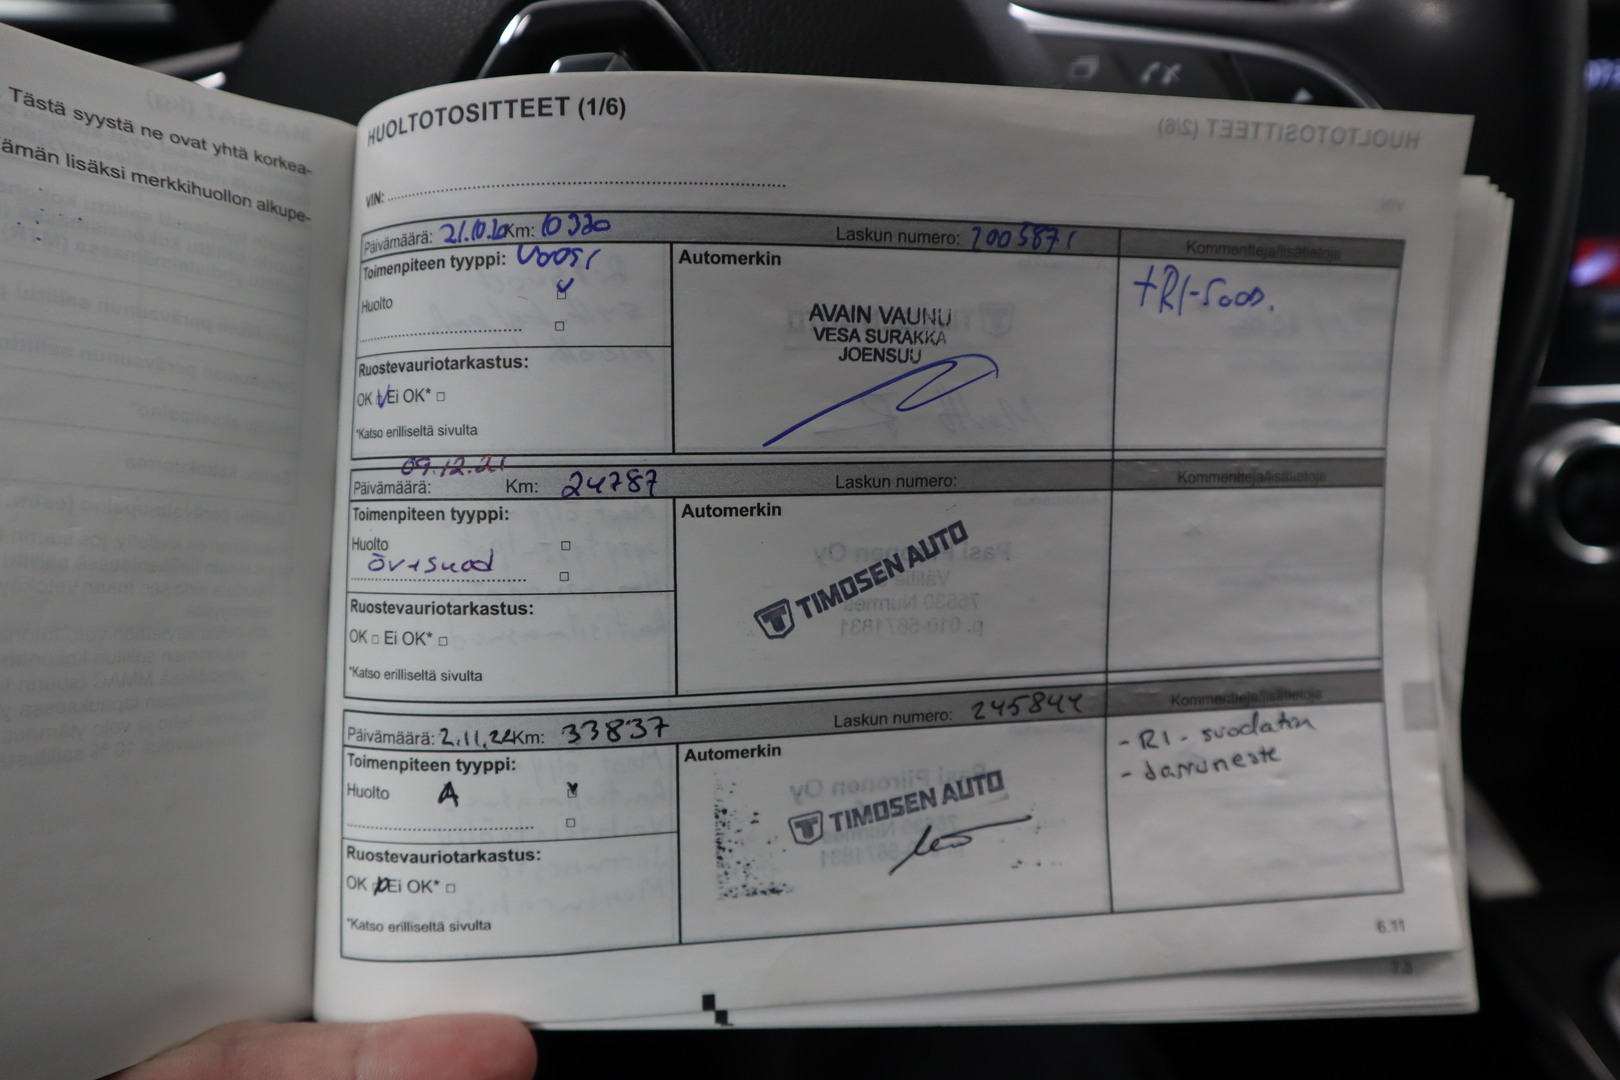 Tästä syystä ne ovat yhtä korkea-
ämän lisäksi merkkihuollon alkupe-
HUOLTOTOSITTEET (1/6)
VIN:
Päivämäärä: 21.10.20 Km: 10320 Laskun numero: 2005871 Kommentteja/lisätietoja
Toimenpiteen tyyppi: Vuosi
Huolto
Ruostevauriotarkastus:
OK Ei OK*
*Katso erilliseltä sivulta
Automerkin
AVAIN VAUNU
VESA SURAKKA
JOENSUU
+RI-Suod.
Päivämäärä: 09.12.21 Km: 24787 Laskun numero: Kommentteja/lisätietoja
Toimenpiteen tyyppi:
Huolto
öv+suod
Ruostevauriotarkastus:
OK Ei OK*
*Katso erilliseltä sivulta
Automerkin
TIMOSEN AUTO
Päivämäärä: 2.11.22 Km: 33837 Laskun numero: 245844 Kommentteja/lisätietoja
Toimenpiteen tyyppi:
Huolto A
Ruostevauriotarkastus:
OK Ei OK*
*Katso erilliseltä sivulta
Automerkin
TIMOSEN AUTO
- RI - suodatin
- Jarruneste
6.11